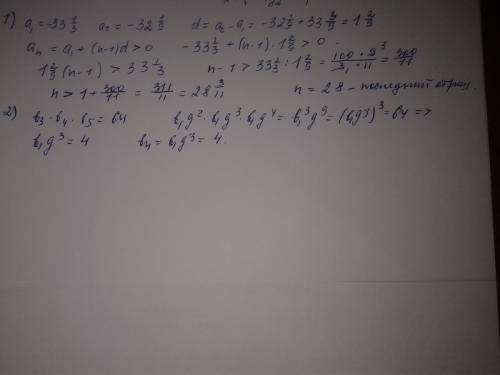 1) a₁ = -33 1/3 a₂ = -32 1/9 d = a₂ - a₁ = -32 1/9 + 33 3/9 = 1 2/9
aₙ = a₁ + (n-1)d > 0 -33 1/3 + (n-1)·1 2/9 > 0
1 2/9 (n-1) > 33 1/3 n-1 > 33 1/3 : 1 2/9 = 100·9³/3₁·11 = 300/11
n > 1 + 300/11 = 311/11 = 28 3/11 n = 28 - последний отриц.
2) b₃·b₄·b₅ = 64 b₁g²·b₁g³·b₁g⁴ = b₁³g⁹ = (b₁g³)³ = 64 =>
b₁g³ = 4 b₄ = b₁g³ = 4.